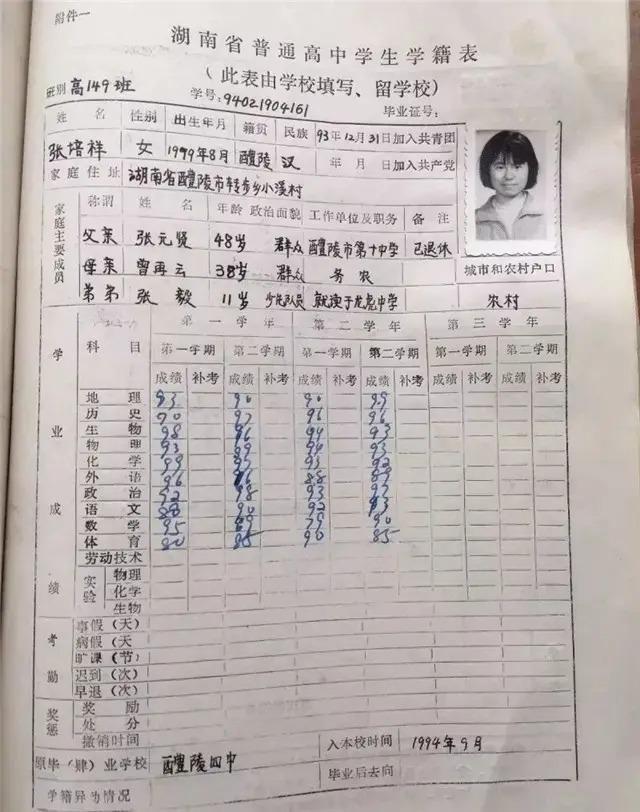 附件一
湖南省普通高中学生学籍表
(此表由学校填写、留学校)
班别 高149班 学号:94021904161 毕业证号:
姓名 性别 出生年月 籍贯 民族 93年12月31日加入共青团
张培祥 女 1979年8月 醴陵 汉 年 月 日加入共产党
家庭住址 湖南省醴陵市转步乡小溪村
家庭主要成员 称谓 姓名 年龄 政治面貌 工作单位及职务 备注
父亲 张元贤 48岁 群众 醴陵市第十中学 已退休
母亲 曾再云 38岁 群众 务农
弟弟 张毅 11岁 少先队员 就读于龙虎中学
城市和农村户口
农村
学业成绩
科目 第一学年 第二学年 第三学年
第一学期 第二学期 第一学期 第二学期 第一学期 第二学期
成绩 补考 成绩 补考 成绩 补考 成绩 补考 成绩 补考 成绩 补考
地理 93 90 90 99
历史 90 97 96 96
生物 98 96 94 93
物理 93 89 94 93
化学 99 97 93 92
外语 96 88
政治 92 98 93 97
语文 88 90 92 93
数学 95 79 90
体育 80 88 90 85
劳动技术
实验 物理
化学
生物
考勤 事假(天)
病假(天
旷课(节)
迟到(次)
早退(次)
奖惩 奖励
处分
撤销时间
原毕(肄)业学校 醴陵四中 入本校时间 1994年9月
毕业后去向
学籍异动情况